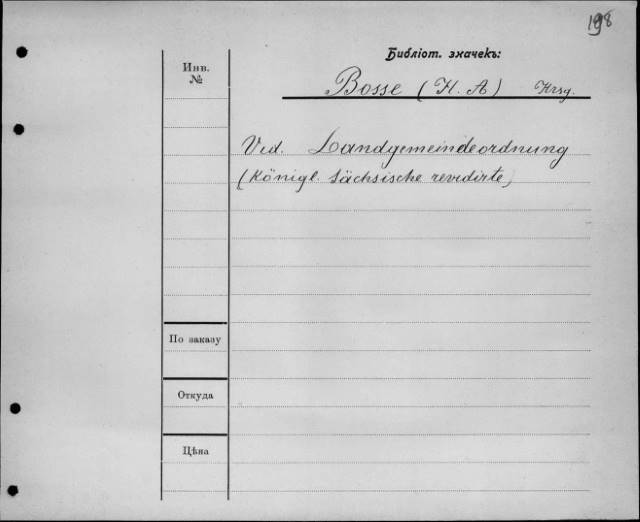 198
Библіот. значекъ:
Инв.
№
Bosse (H. A) Hrsg.
Vid. Landgemeindeordnung
(Königl. Sächsische revidirte)
По заказу
Откуда
Цѣна